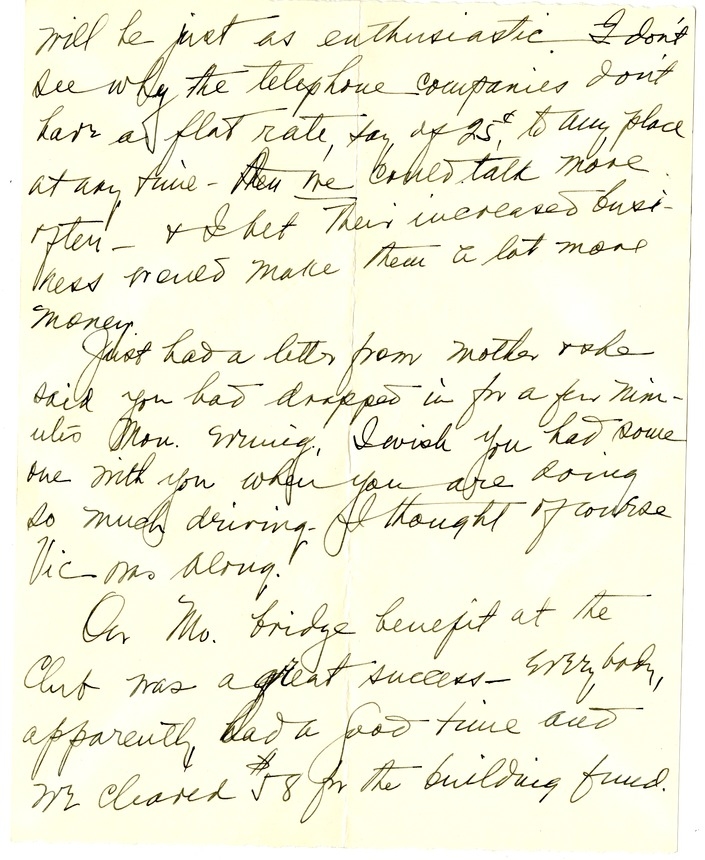 will be just as enthusiastic. I don't
see why the telephone companies don't
have a flat rate, say of 25¢, to any place
at any time - then we could talk more
often - & I bet their increased busi-
ness would make them a lot more
money.
Just had a letter from mother & she
said you had dropped in for a few min-
utes Mon. evening. I wish you had some
one with you when you are doing
so much driving - I thought of course
Vic was along.
Our Mo. bridge benefit at the
Club was a great success - everybody,
apparently, had a good time and
we cleared $58 for the building fund.